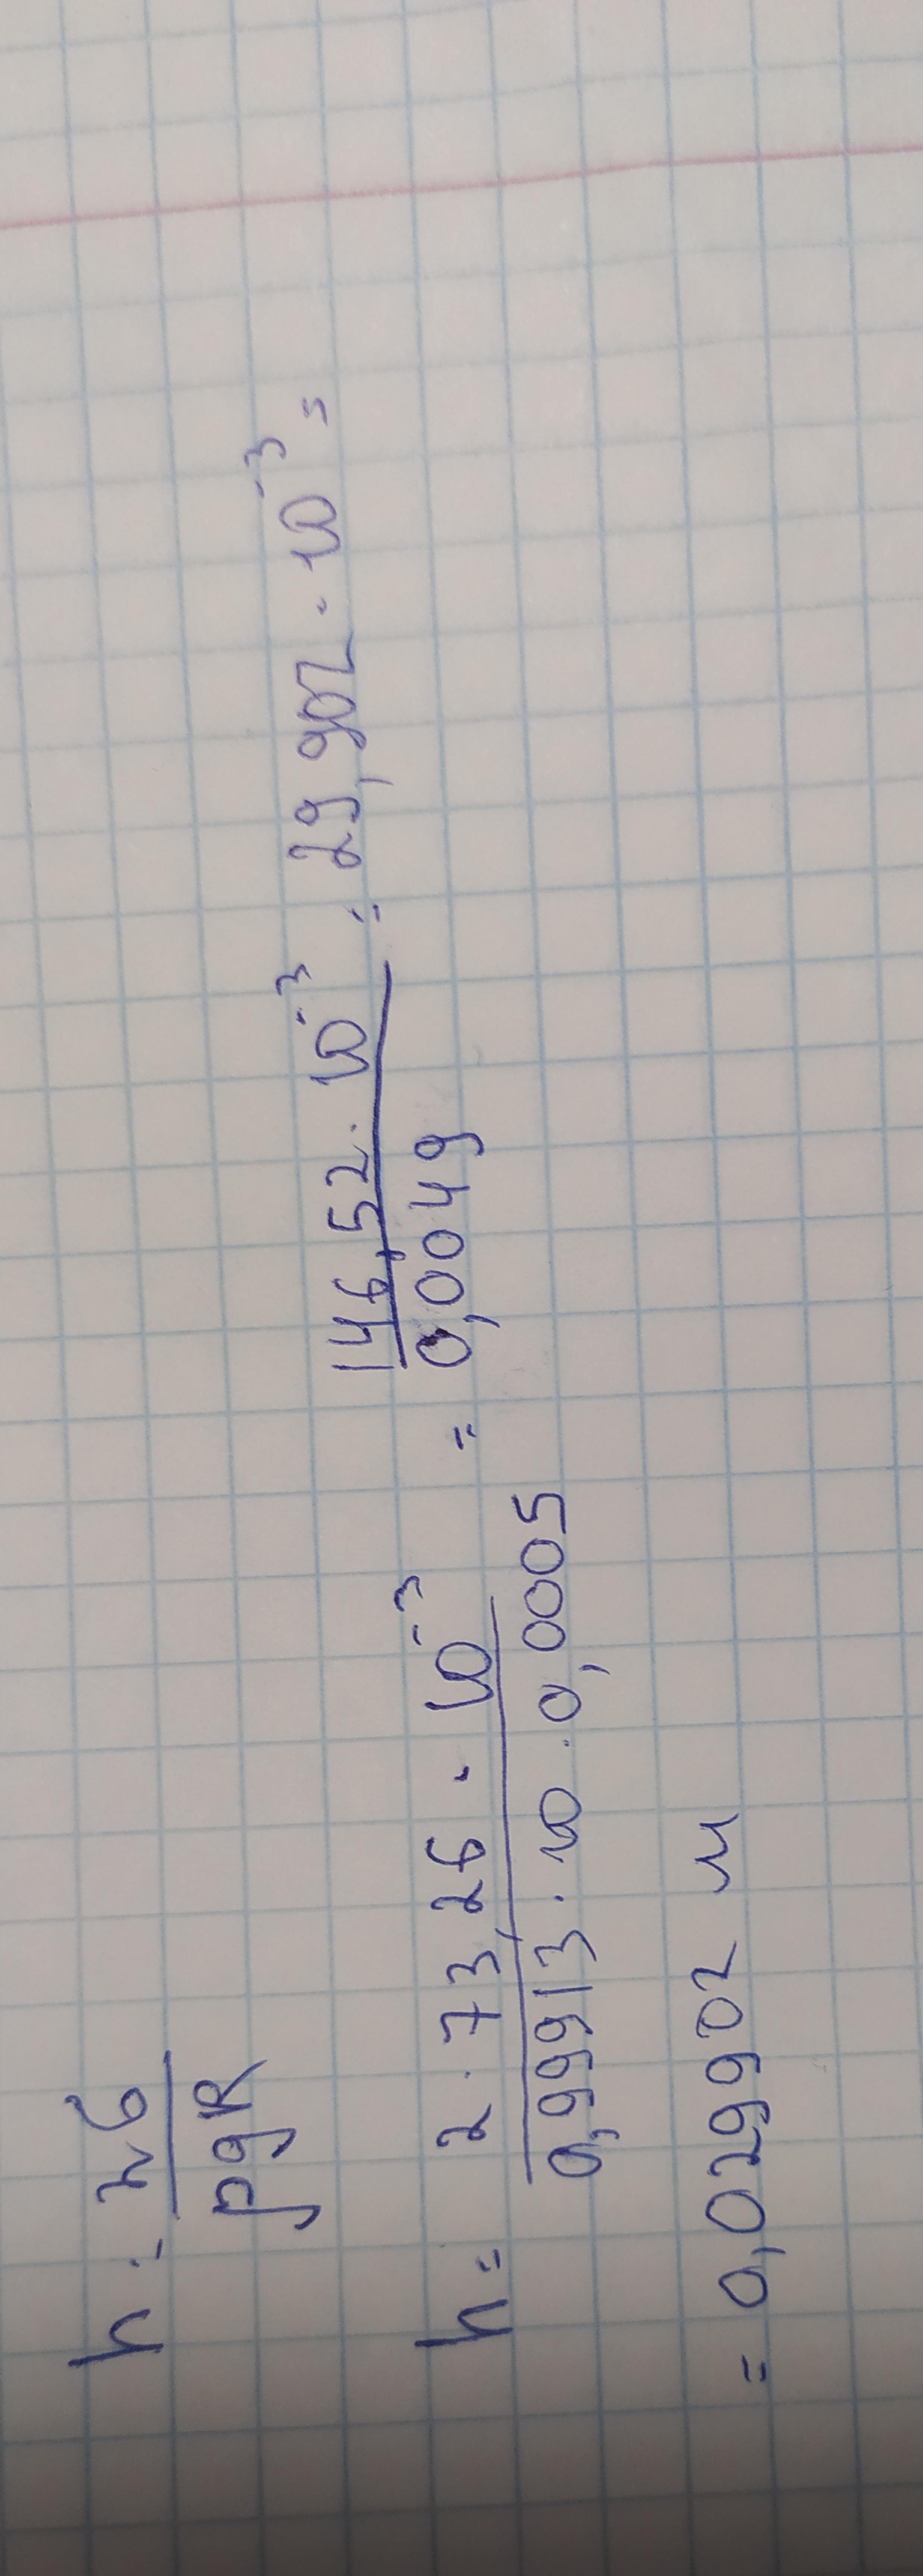 h = 2σ / ρgR
h = 2 · 73,26 · 10⁻³ / 0,99913 · 10 · 0,0005 = 146,52 · 10⁻³ / 0,0049 = 29,902 · 10⁻³ =
= 0,029902 м